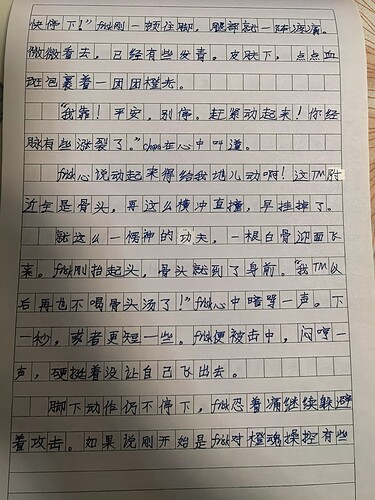 快停下！”frisk刚一顿住脚，腿部就一阵疼痛。
微微看去，已经有些发青。皮肤下，点点血
斑包裹着一团团橙光。
“我靠！平安，别停。赶紧动起来！你经
脉有些涨裂了。”chara在心中叫道。
frisk心说动起来得给我地儿动啊！这TM附
近全是骨头，再这么横冲直撞，早挂掉了。
就这么一愣神的功夫，一根白骨迎面飞
来。frisk刚抬起头，骨头就到了身前。“我TM以
后再也不喝骨头汤了！”frisk心中暗骂一声。下
一秒，或者更短一些。frisk便被击中，闷哼一
声，硬挺着没让自己飞出去。
脚下动作仍不停下，frisk忍着痛继续躲避
着攻击。如果说刚开始是frisk对橙魂操控有些